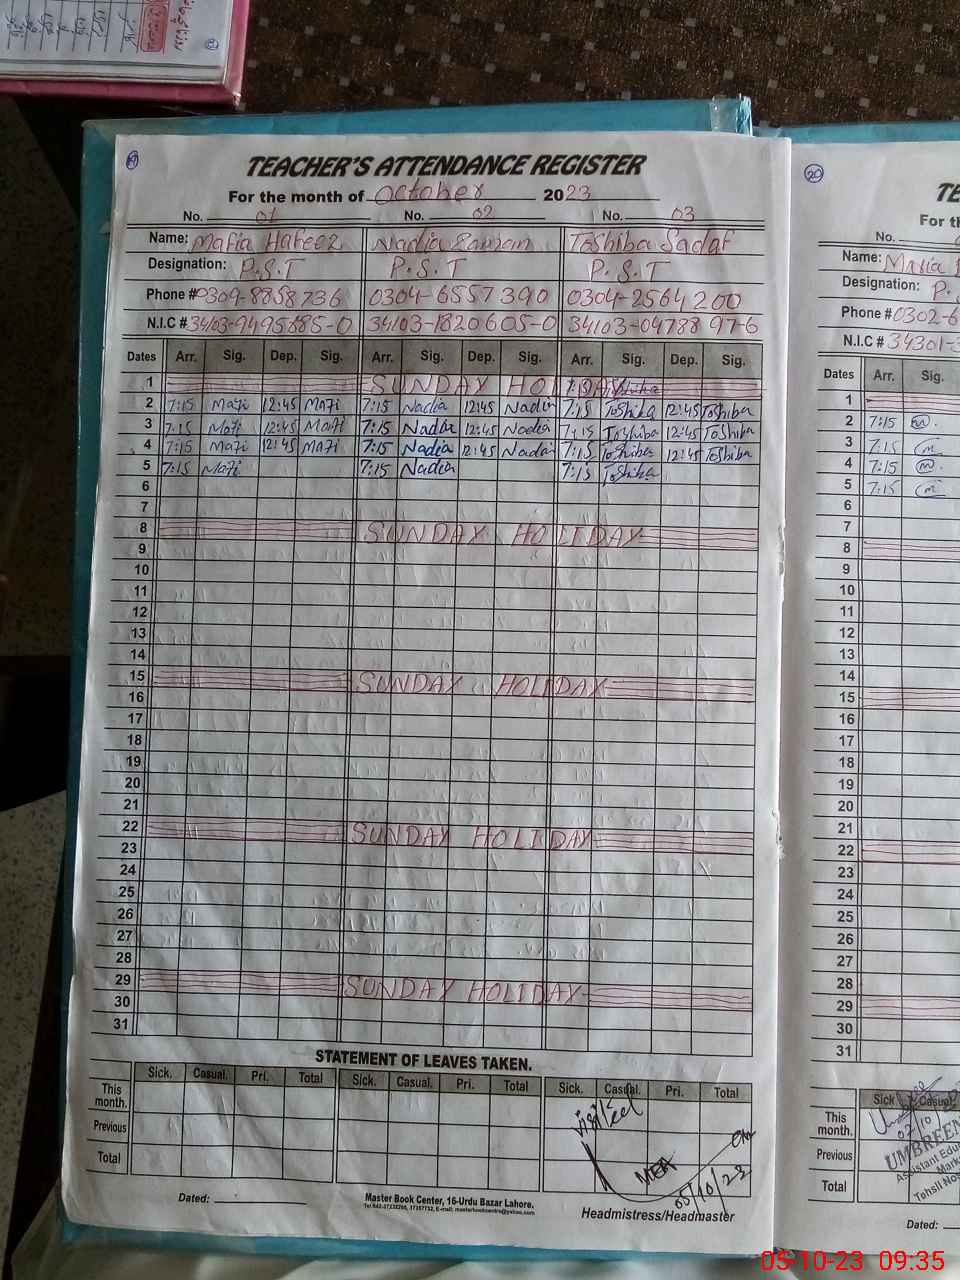 19
TEACHER'S ATTENDANCE REGISTER
For the month of October 2023
No. 01 No. 02 No. 03
Name: Mafia Hafeez Nadia Zaman Toshiba Sadaf
Designation: P.S.T P.S.T P.S.T
Phone # 0309-8858736 0304-6557390 0304-2564200
N.I.C # 34103-9495685-0 34103-1820605-0 34103-0478897-6
Dates Arr. Sig. Dep. Sig. Arr. Sig. Dep. Sig. Arr. Sig. Dep. Sig.
1 SUNDAY HOLIDAY Toshiba
2 7:15 Mafi 12:45 Mafi 7:15 Nadia 12:45 Nadia 7:15 Toshiba 12:45 Toshiba
3 7:15 Mafi 12:45 Mafi 7:15 Nadia 12:45 Nadia 7:15 Toshiba 12:45 Toshiba
4 7:15 Mafi 12:45 Mafi 7:15 Nadia 12:45 Nadia 7:15 Toshiba 12:45 Toshiba
5 7:15 Mafi 7:15 Nadia 7:15 Toshiba
6
7
8 SUNDAY HOLIDAY
9
10
11
12
13
14
15 SUNDAY HOLIDAY
16
17
18
19
20
21
22 SUNDAY HOLIDAY
23
24
25
26
27
28
29 SUNDAY HOLIDAY
30
31
STATEMENT OF LEAVES TAKEN.
Sick. Casual. Pri. Total Sick. Casual. Pri. Total Sick. Casual. Pri. Total
This month.
Previous
Total
visited
MEA
05/10/23
Dated:
Master Book Center, 16-Urdu Bazar Lahore.
Headmistress/Headmaster
20
TE
For th
No.
Name: Maria
Designation: P.
Phone # 0302-6
N.I.C # 34301-3
Dates Arr. Sig.
1
2 7:15 m.
3 7:15 m
4 7:15 m.
5 7:15 m
6
7
8
9
10
11
12
13
14
15
16
17
18
19
20
21
22
23
24
25
26
27
28
29
30
31
Sick Casual
This month.
Previous
Total
UMBREEN
Assistant Edu
Mark
Tehsil Nos
Dated:
05-10-23 09:35